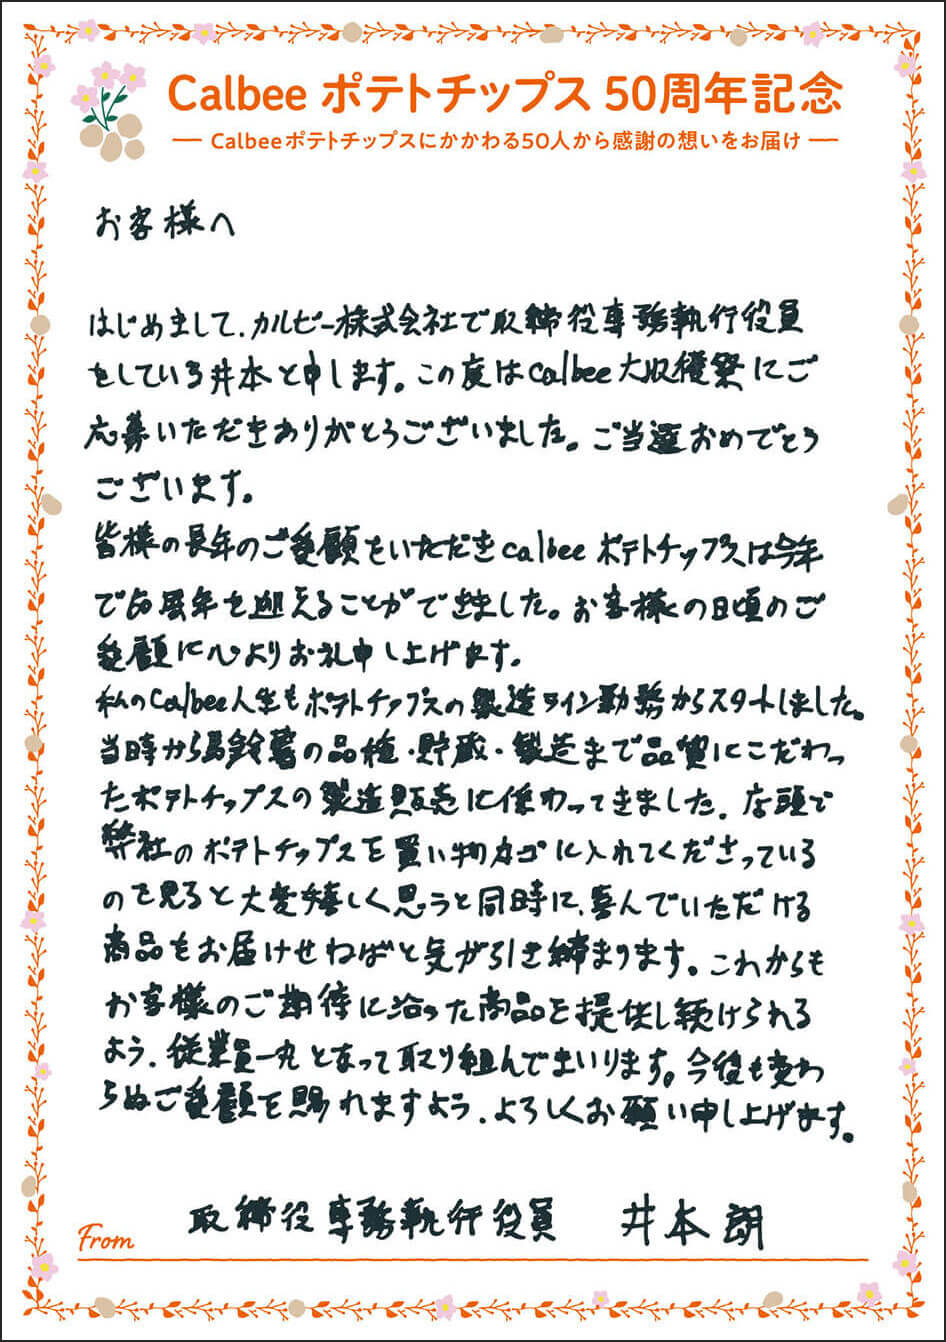 Calbee ポテトチップス 50周年記念
Calbeeポテトチップスにかかわる50人から感謝の想いをお届け
お客様へ
はじめまして、カルビー株式会社で取締役専務執行役員
をしている井本と申します。この度はCalbee大収穫祭にご
応募いただきありがとうございました。ご当選おめでとう
ございます。
皆様の長年のご愛顧をいただきcalbeeポテトチップスは今年
で50周年を迎えることができました。お客様の日頃のご
愛顧に心よりお礼申し上げます。
私のCalbee人生もポテトチップスの製造ライン勤務からスタートしました。
当時から馬鈴薯の品種・貯蔵・製造まで品質にこだわっ
たポテトチップスの製造販売に係わってきました。店頭で
弊社のポテトチップスを買い物カゴに入れてくださっている
のを見ると大変嬉しく思うと同時に、喜んでいただける
商品をお届けせねばと気が引き締まります。これからも
お客様のご期待に沿った商品を提供し続けられる
よう、従業員一丸となって取り組んでまいります。今後も変わ
らぬご愛顧を賜れますよう、よろしくお願い申し上げます。
取締役専務執行役員 井本朗
From